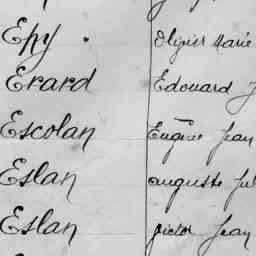 Epy . Olivier Marie
Erard Edouard J
Escolan Eugène Jean
Eslan auguste Jul
Eslan victor Jean